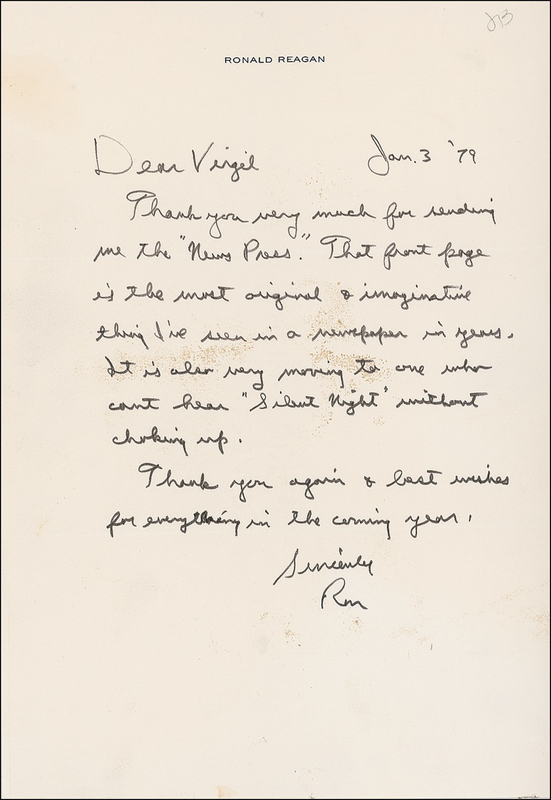 RONALD REAGAN
Dear Virgil Jan. 3 '79
Thank you very much for sending
me the "News Press." That front page
is the most original & imaginative
thing I've seen in a newspaper in years.
It is also very moving to one who
cant hear "Silent Night" without
choking up.
Thank you again & best wishes
for everything in the coming year.
Sincerely
Ron